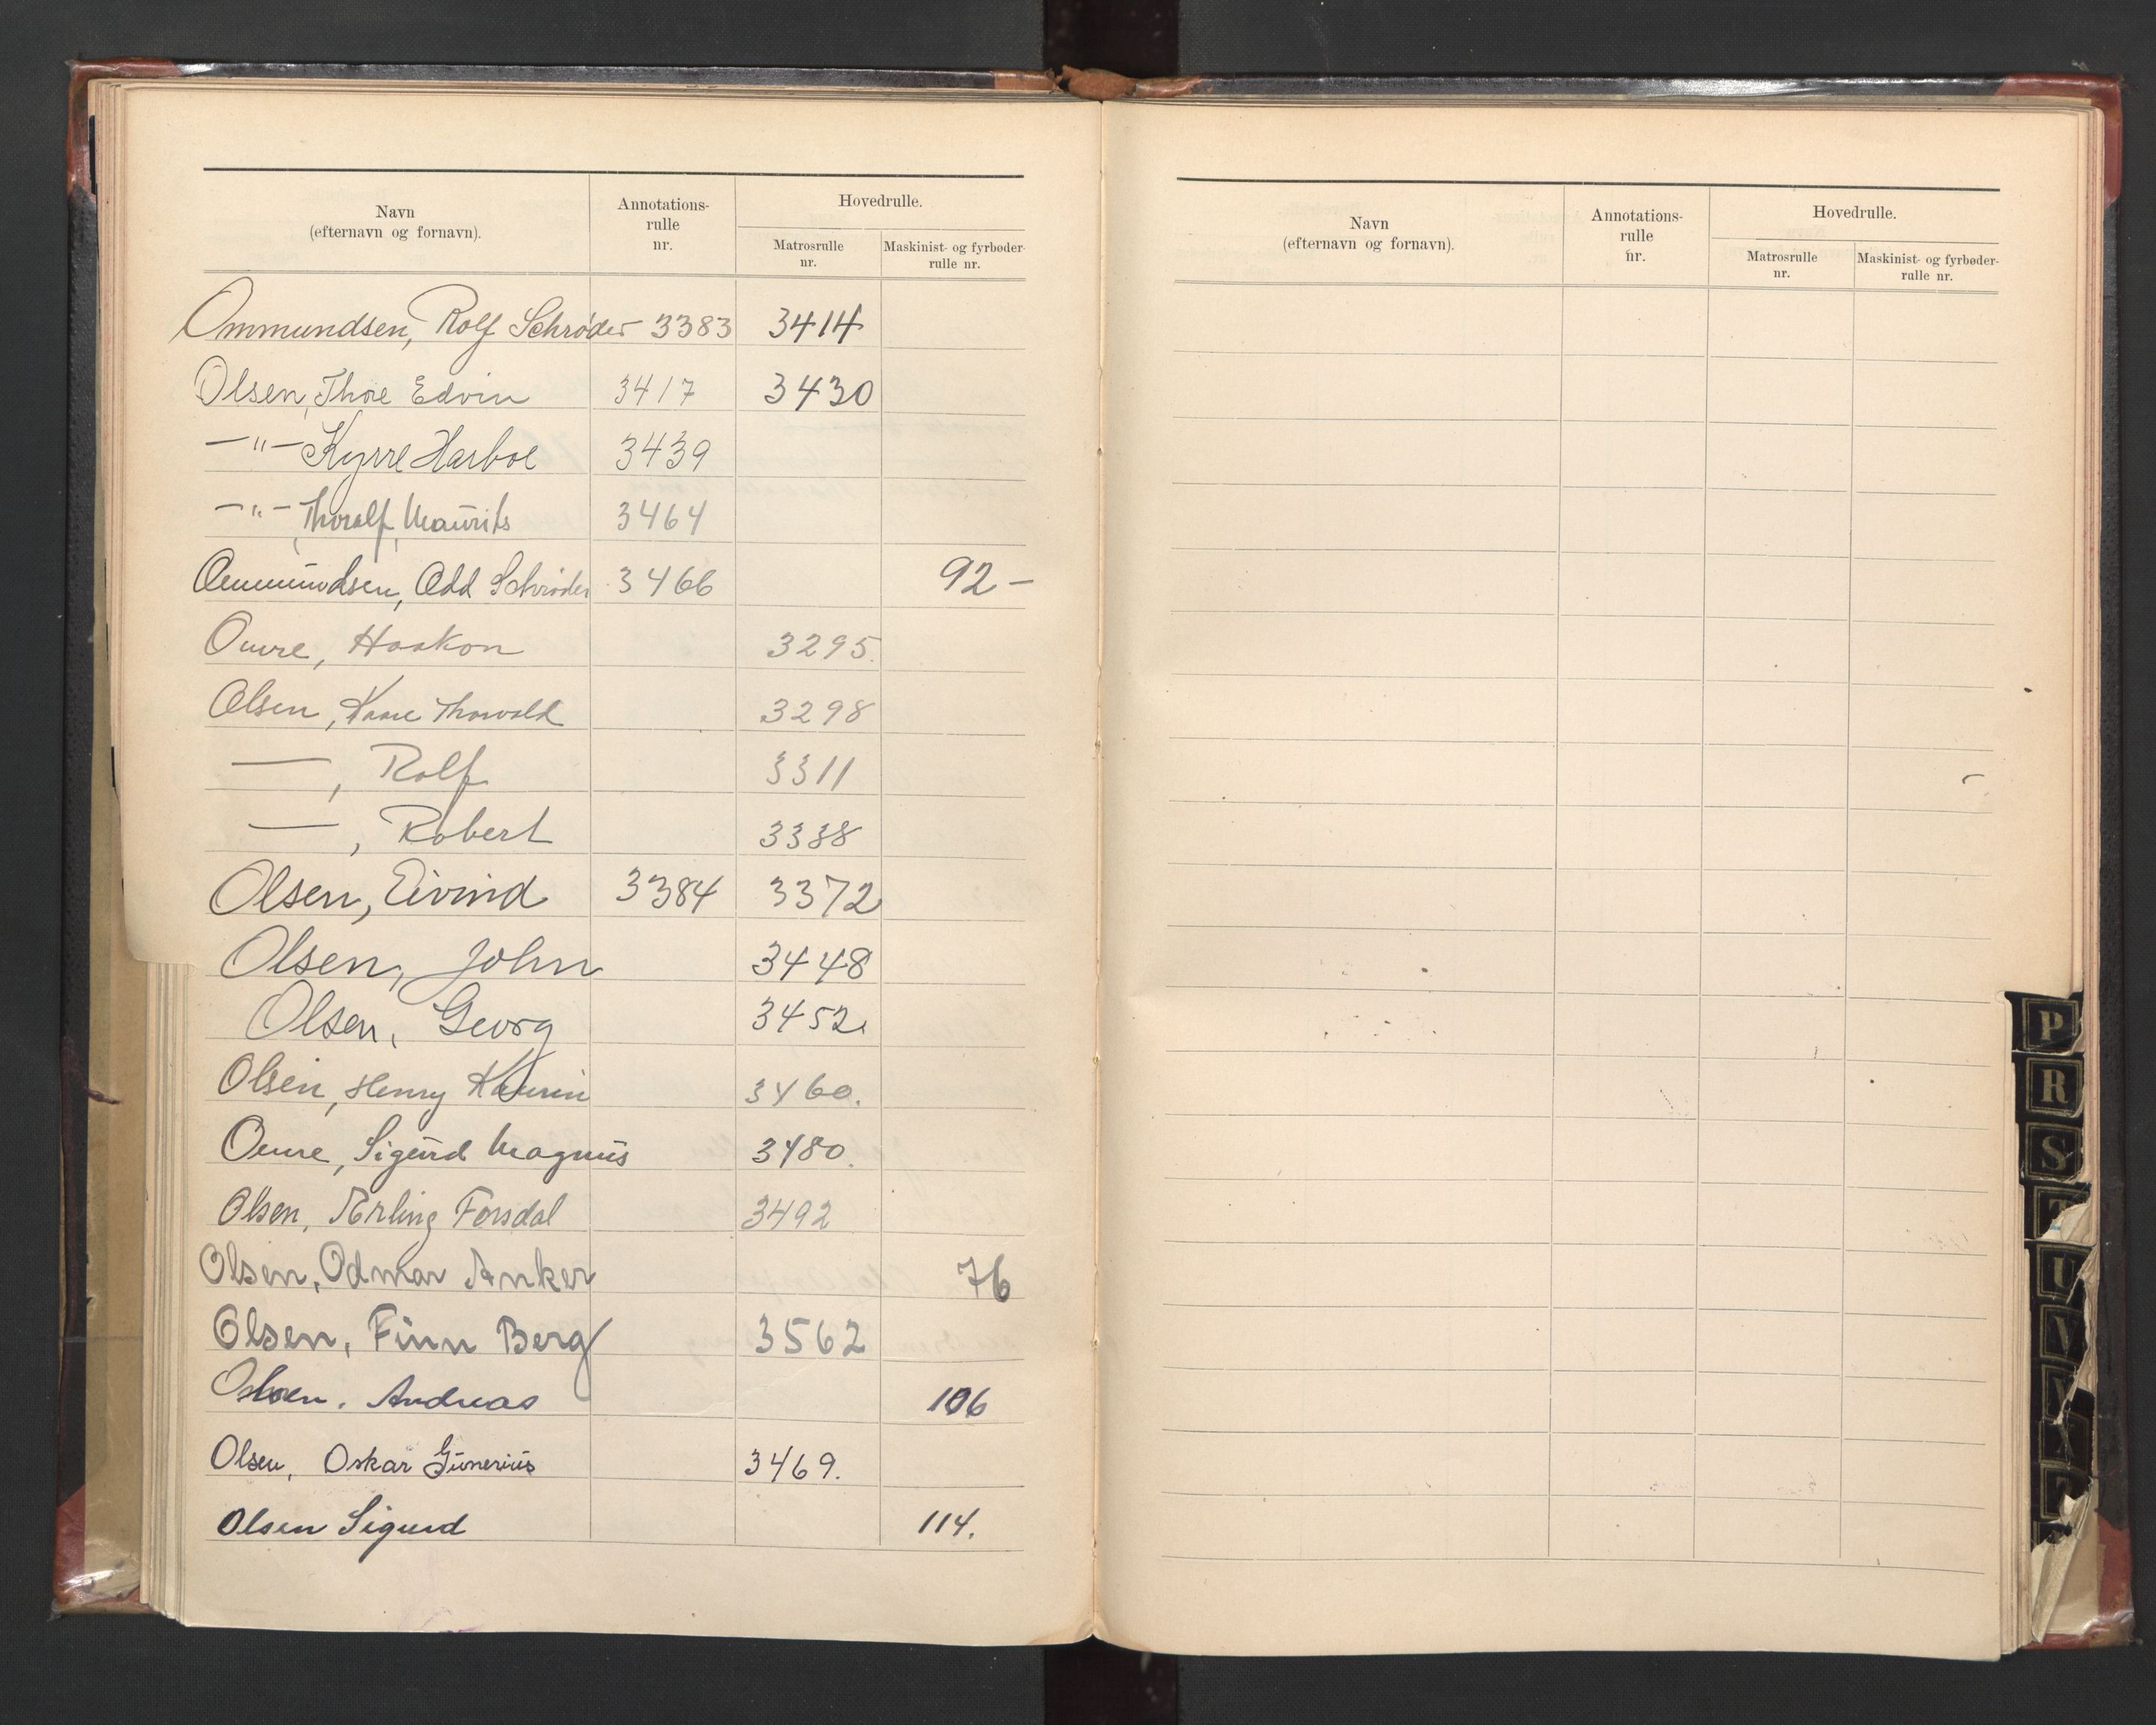 Navn
(efternavn og fornavn).
Annotations-
rulle
nr.
Hovedrulle.
Matrosrulle
nr.
Maskinist- og fyrbøder-
rulle nr.
Ommundsen, Rolf Schrøder 3383 3414
Olsen, Thore Edvin 3417 3430
—"— Kyrre Harboe 3439
—"— Thoralf Maurits 3464
Ommundsen, Odd Schrøder 3466 92 —
Omre, Haakon 3295.
Olsen, Kaare Thorvald 3298
—, Rolf 3311
—, Robert 3338
Olsen, Eivind 3384 3372
Olsen, John 3448
Olsen, Georg 3452.
Olsen, Henry Kaurin 3460.
Omre, Sigurd Magnus 3480.
Olsen, Erling Forsdal 3492
Olsen, Odmar Anker 76
Olsen, Finn Berg 3562
Olsen, Andreas 106
Olsen, Oskar Gunerius 3469.
Olsen Sigurd 114.
Navn
(efternavn og fornavn).
Annotations-
rulle
nr.
Hovedrulle.
Matrosrulle
nr.
Maskinist- og fyrbøder-
rulle nr.
P
R
S
T
U
V